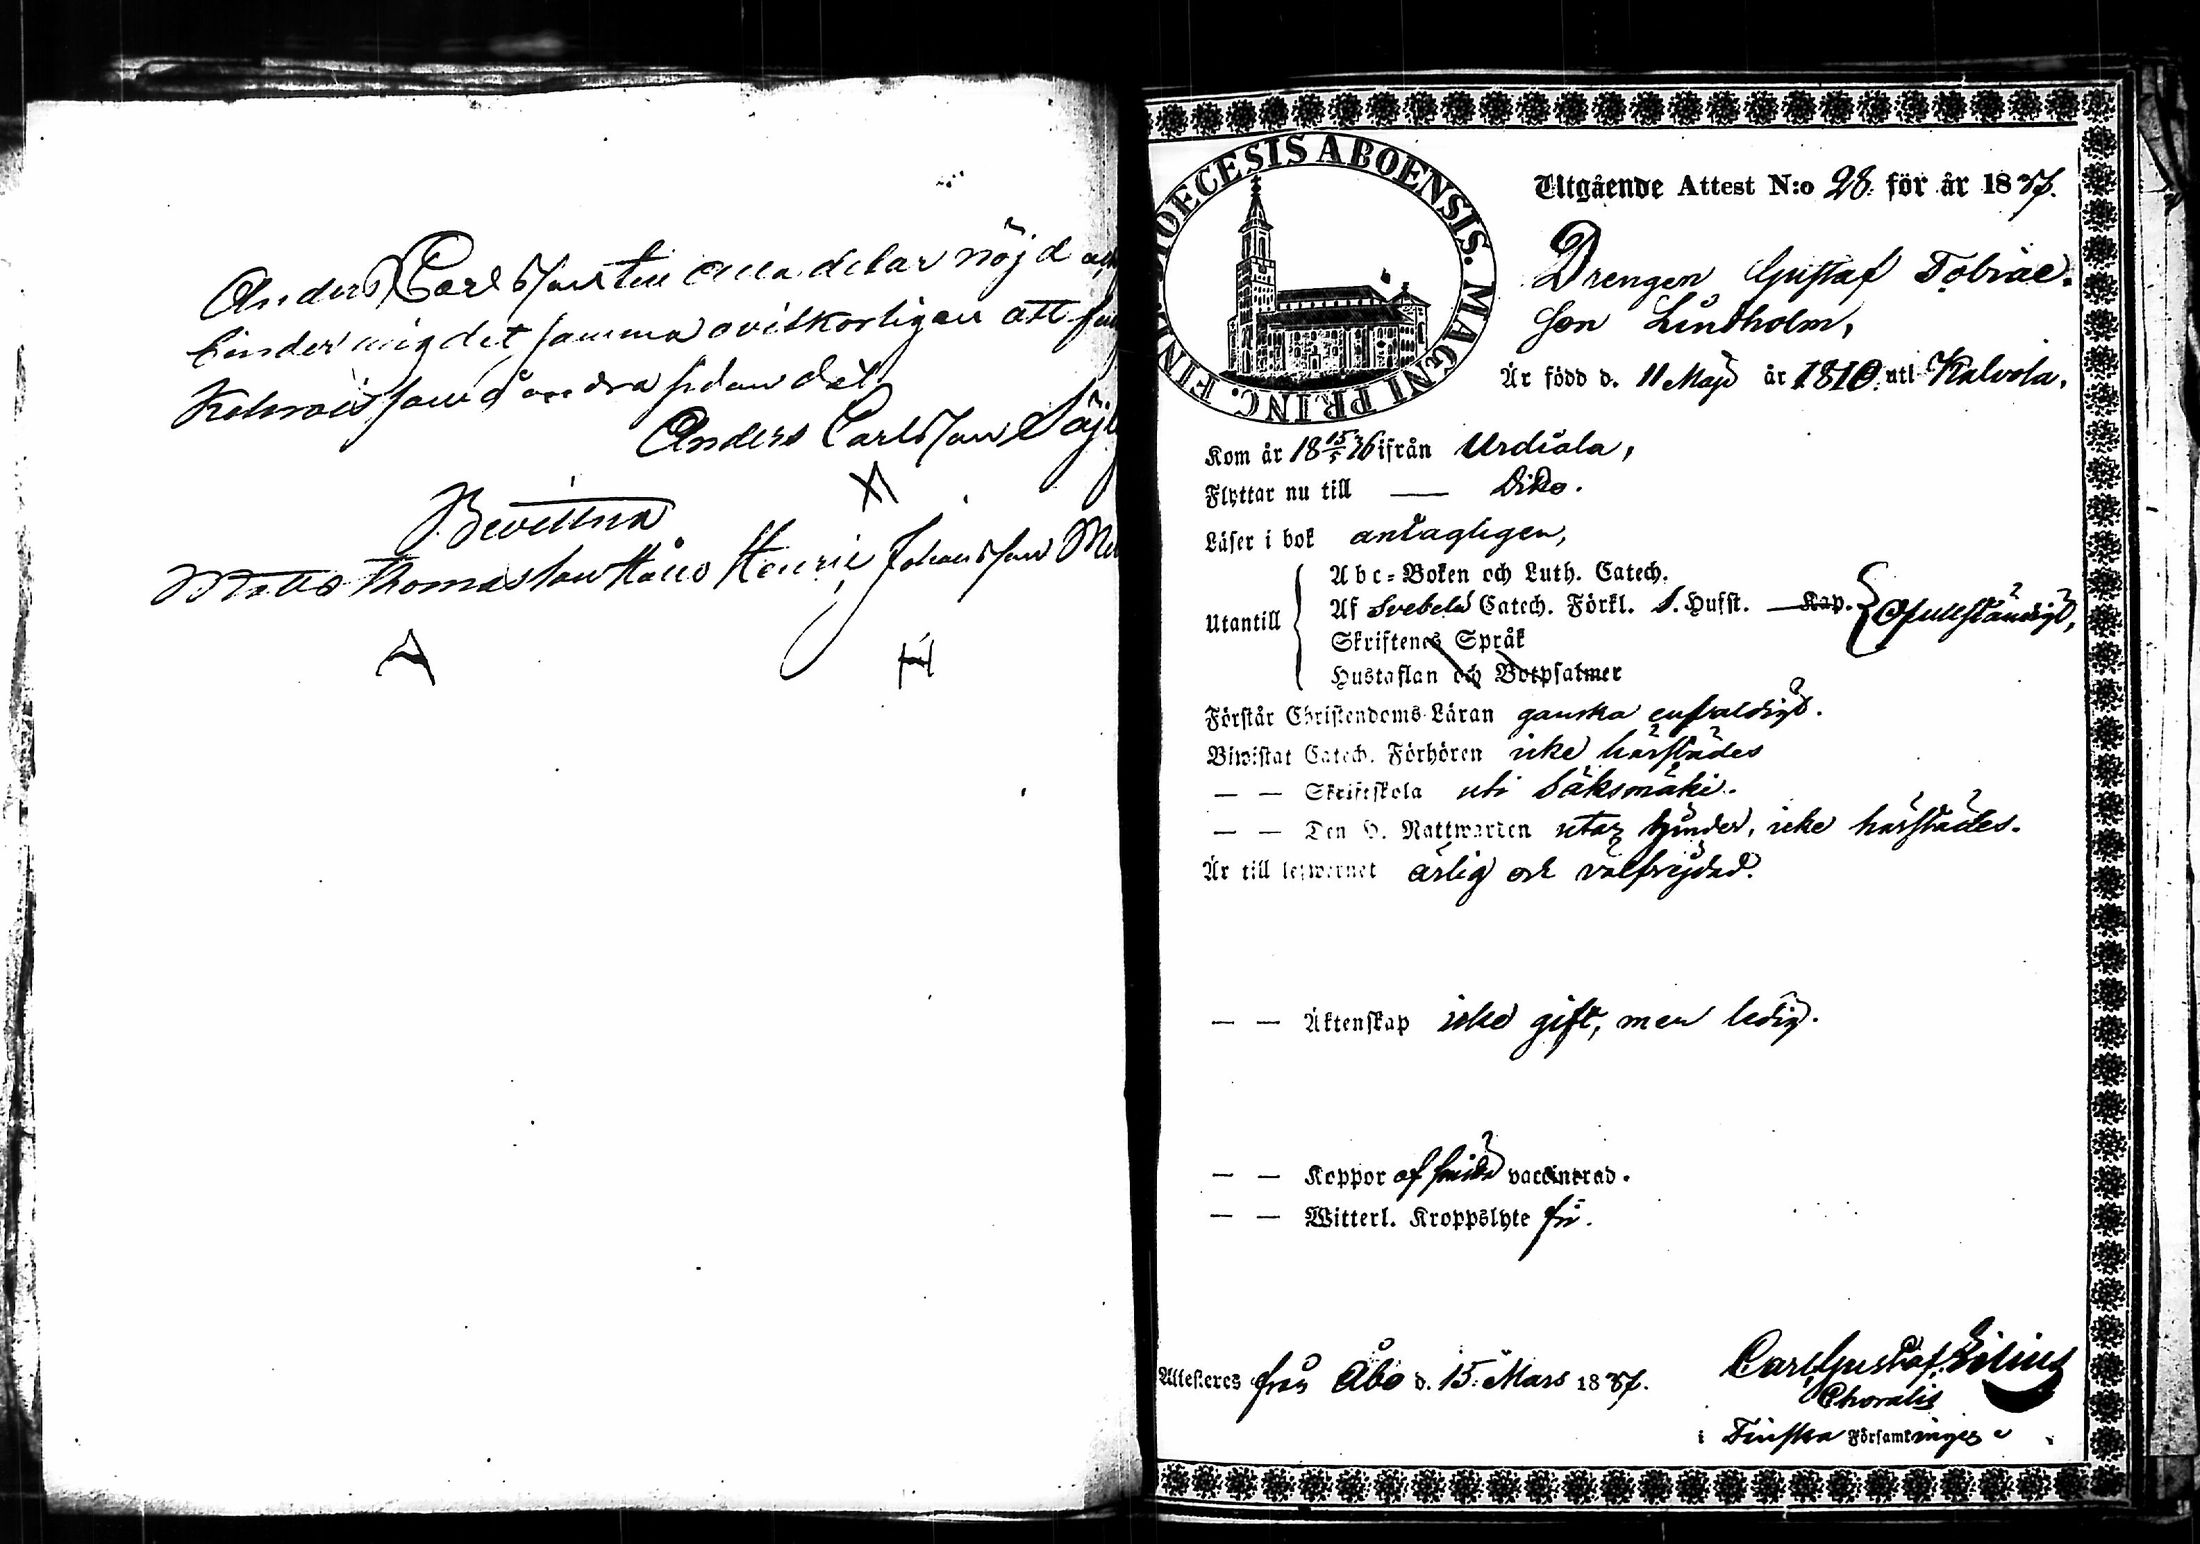 Anders Carlsson till alla delar nöjd
binder mig det samma ovilkorligen att
som å andra sidan
Anders Carlsson
Bevittna
Matts Thomasson Henric Johansson
A H
DIOECESIS ABOENSIS. MAGNI PRINC. FINL.
Utgående Attest N:o 28 för år 1837.
Drengen Gustaf Tobiae-
son Lindholm,
Är född d. 11 Maji år 1810. uti Kalvola.
Kom år 18 15/5 36 ifrån Urdiala,
Flyttar nu till — Dito.
Läser i bok antagligen,
Abc-Boken och Luth. Catech.
Utantill Af Svebelii Catech. Förkl. S. Husst. — Kap. ofullständigt,
Skriftenes Språk
Hustaflan och Botpsalmer
Förstår Christendoms-Läran ganska enfaldigt.
Biwistat Catech. Förhören icke härstädes
— — Skriftskola uti Säksmäki.
— — Den H. Nattwarden utan hinder, icke härstädes.
Är till lefwernet ärlig och välfrejdad.
— — Äktenskap icke gift, men ledig.
— — Koppor vaccinerad.
— — Witterl. Kroppslyte fri.
Attesteres från Åbo d. 15. Mars 1837.
Carl Gustaf
Choralis
i Finska Församlingen